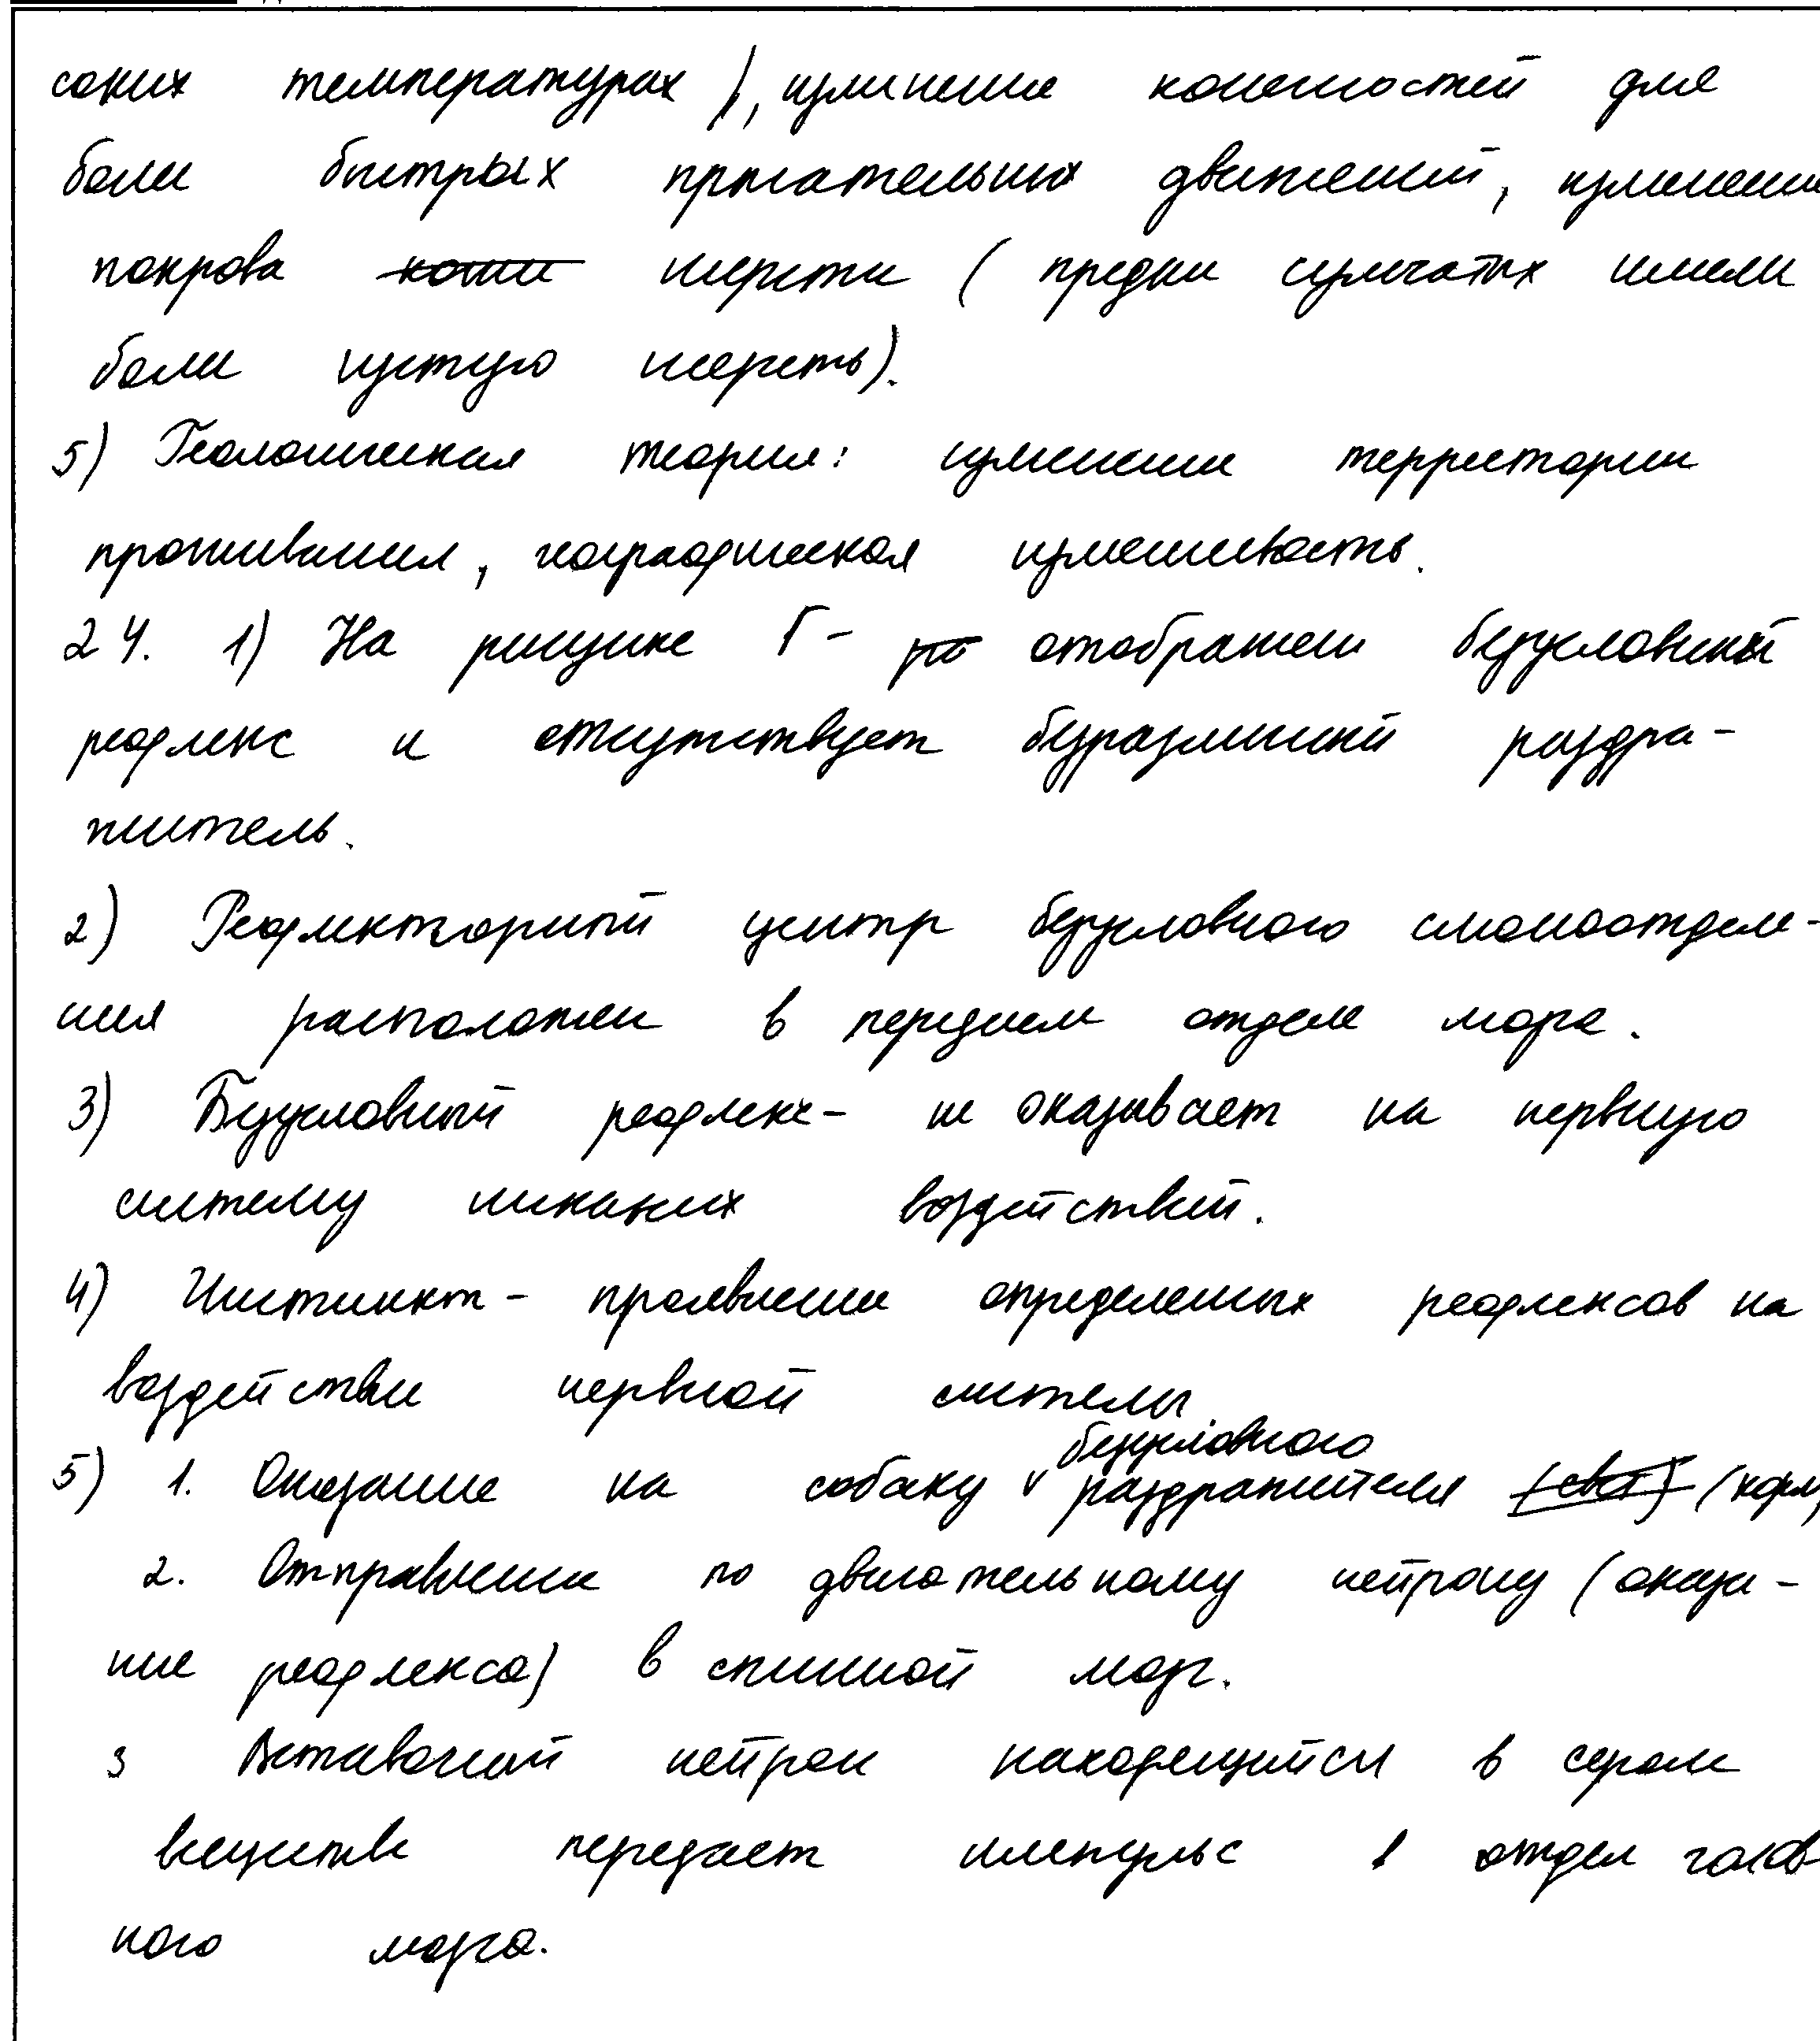 соких температурах), изменение конечностей для
более быстрых прыгательных движений, изменение
покрова кожи шерсти ( предки сумчатых имели
более густую шерсть).
5) Геологическая теория: изменение терристории
проживания, географическая изменчивость.
24. 1) На рисунке Г- отображен безусловный
рефлекс и отсутствует безразличный раздра-
житель.
2) Рефлекторный центр безусловного слюноотделе-
ния расположен в переднем отделе мозга.
3) Безусловный рефлекс- не оказывает на нервную
систему никаких воздействий.
4) Инстинкт- проявление определенных рефлексов на
воздействие нервной системы
безусловного
5) 1. Оказание на собаку v раздражителя (свет) (корм)
2. Отправление по двигательному нейрону (оказа-
ние рефлекса) в спинной мозг.
3 Вставочный нейрон находящийся в сером
веществе передает импульс в отдел голов
ного мозга.